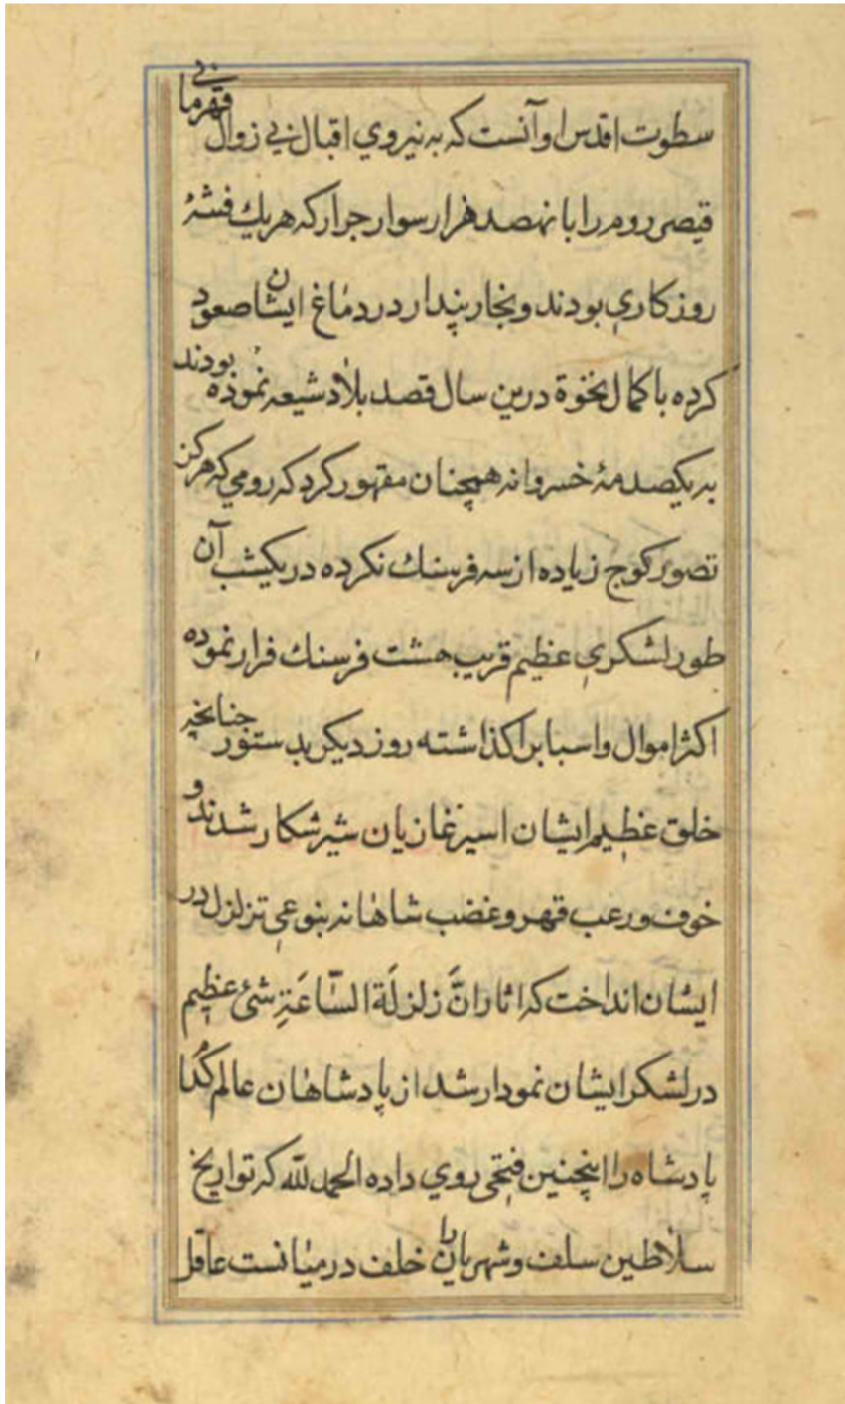 سطوت اقدس او آنست که به نیروي اقبال بي زوال قهرماني
قیصر روم را با نهصد هزار سوار جرار که هریك فتنۀ
روزکاري بودند و بخار پندار در دماغ ایشان صعود
کرده با کمال نخوة درین سال قصد بلاد شیعه نموده بودند
به یکصدمۀ خسروانه همچنان مقهور کرد که رومي که هرکز
تصور کوج زیاده از سه فرسنك نکرده در یکشب آن
طور لشکري عظیم قریب هشت فرسنك فرار نموده
اکثر اموال و اسباب را کذاشته روز دیکر بدستور چنانچه
خلق عظیم ایشان اسیر غازیان شیر شکار شدند و
خوف و رعب قهر و غضب شاهانه بنوعي تزلزل در
ایشان انداخت که اثار انَّ زلزلَة السّاعَةِ شئ عظیم
در لشکر ایشان نمودار شد از پادشاهان عالم کُدا
پادشاه را اینچنین فتحي روي داده الحمد لله که تواریخ
سلاطین سلف و شهریاران خلف در میانست عاقل